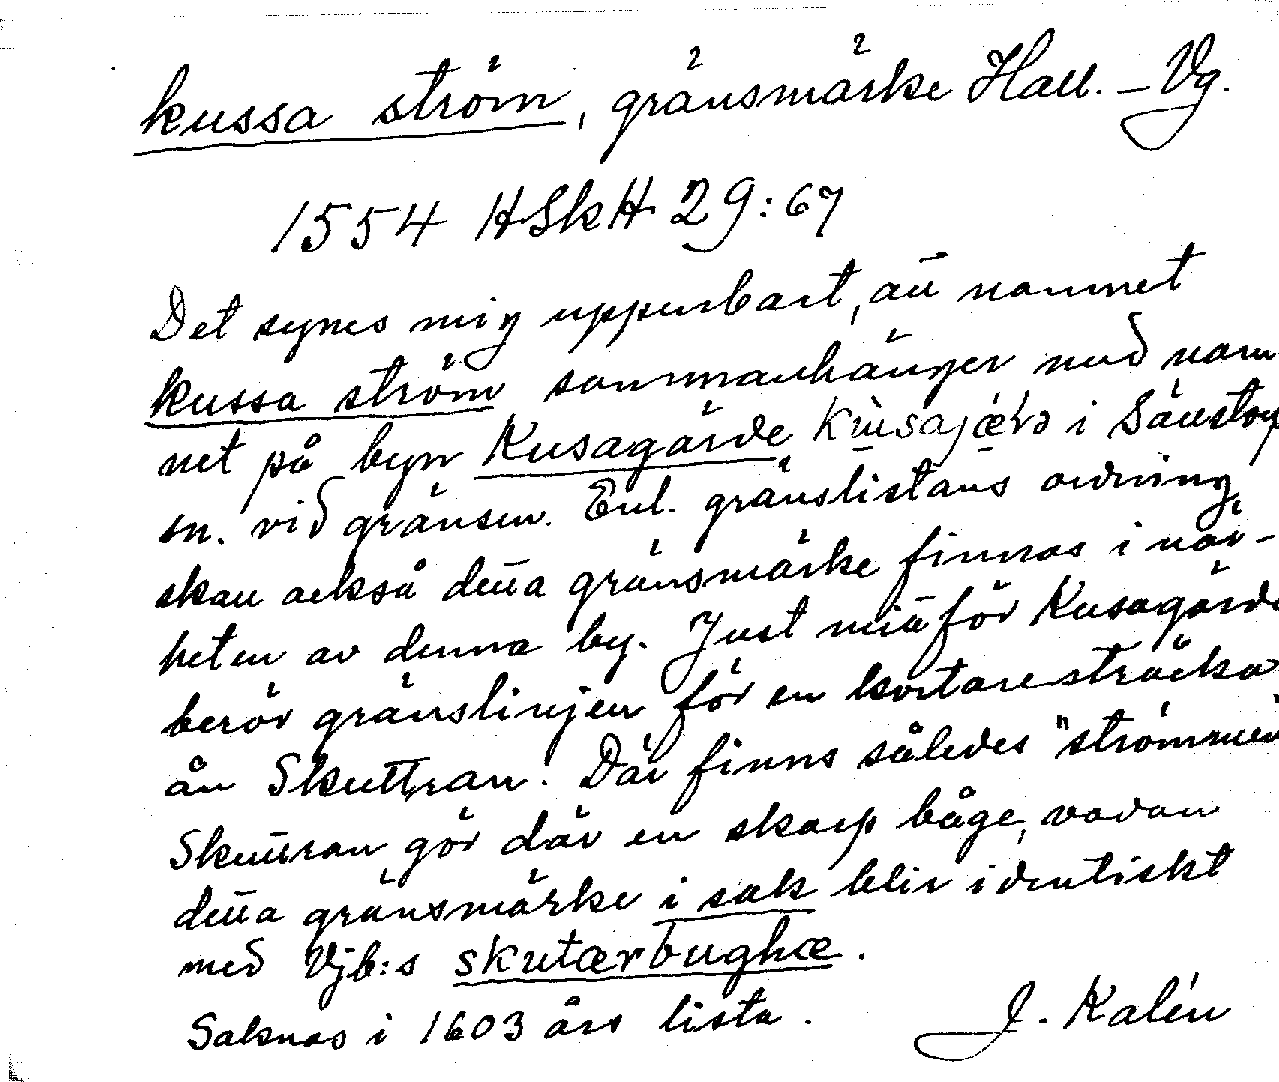 kussa ström, gränsmärke Hall. – Vg.
1554 HSkH 29:67
Det synes mig uppenbart, att namnet
kussa ström sammanhänger med nam
net på byn Kusagärde i Sänstop
sn. vid gränsen. Enl. gränslistans ordning
skall också detta gränsmärke finnas i när-
heten av denna by. Just mitt för Kusagärde
berör gränslinjen för en kortare sträcka
ån Skuttran. Där finns således "strömmen
Skuttran gör där en skarp båge, varan
detta gränsmärke i sak blir identiskt
med Vjb:s skutærbughæ.
Saknas i 1603 års lista.
J. Kalén